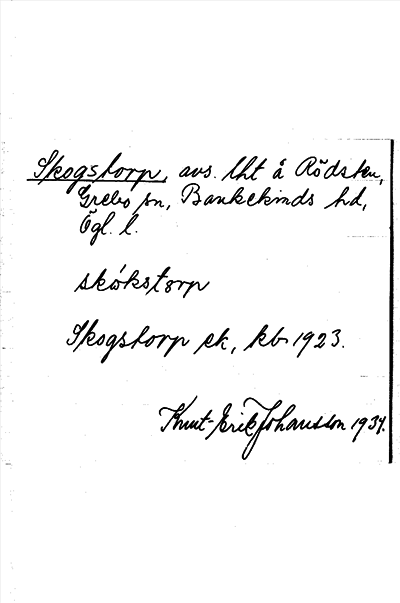 Skogstorp, avs. lht å Rödsten,
Grebo sn, Bankekinds hd,
Ögl. l.
skókstorp
Skogstorp ek, kb 1923.
Knut-Erik Johansson 1934.